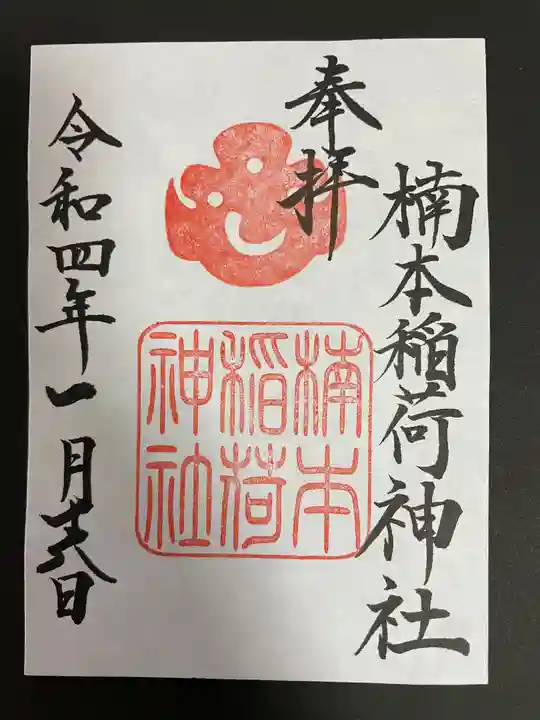 奉拝
楠本稲荷神社
楠本
稲荷
神社
令和四年一月十六日